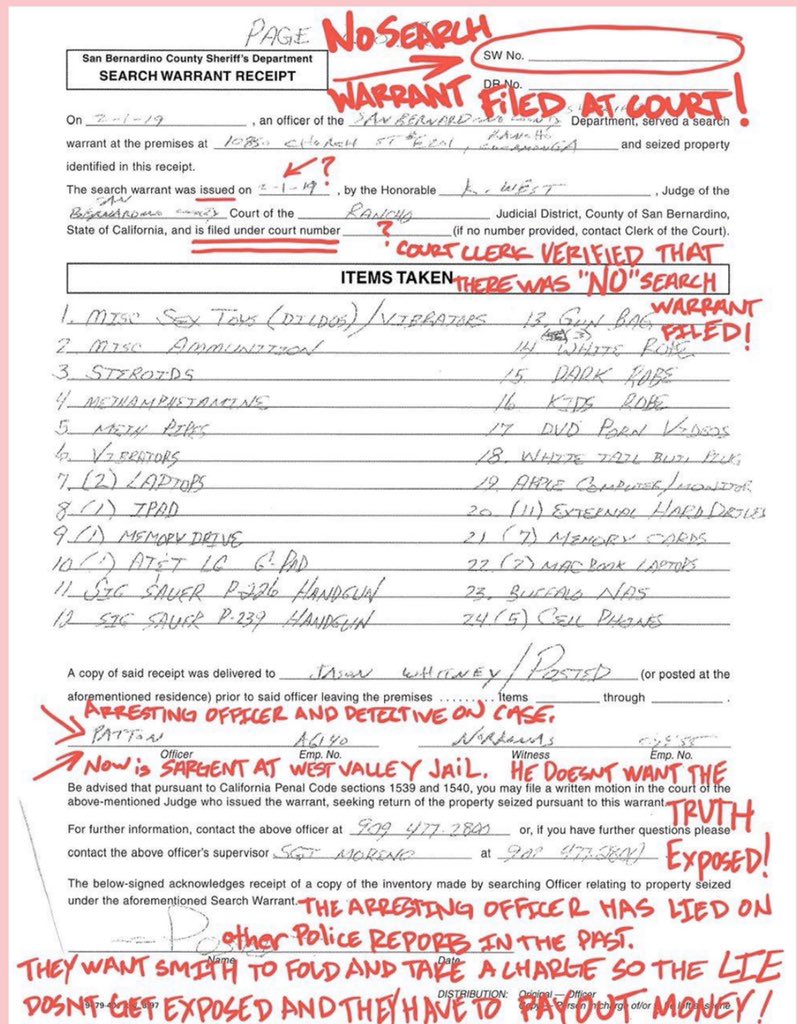 PAGE
NO SEARCH
San Bernardino County Sheriff's Department
SEARCH WARRANT RECEIPT
SW No.
WARRANT FILED AT COURT!
DR No.
On 2-1-19, an officer of the SAN BERNARDINO COUNTY Department, served a search
warrant at the premises at CHURCH ST RANCHO CUCAMONGA and seized property
identified in this receipt.
?
The search warrant was issued on 2-1-19, by the Honorable K. WEST, Judge of the
SAN BERNARDINO COUNTY Court of the RANCHO Judicial District, County of San Bernardino,
State of California, and is filed under court number ? (if no number provided, contact Clerk of the Court).
COURT CLERK VERIFIED THAT
ITEMS TAKEN
THERE WAS "NO" SEARCH
WARRANT
FILED!
1. MISC SEX TOYS (DILDOS) / VIBRATORS
2 MISC AMMUNITION
3 STEROIDS
4 METHAMPHETAMINE
5 METH PIPES
6 VIBRATORS
7. (2) LAPTOPS
8 (1) IPAD
9 (1) MEMORY DRIVE
10 (1) AT&T LG G-PAD
11 SIG SAUER P-226 HANDGUN
12 SIG SAUER P-239 HANDGUN
13. GUN BAG
14 WHITE ROBE
15 DARK ROBE
16 KIDS ROBE
17 DVD PORN VIDEOS
18. WHITE TAIL BUTT PLUG
19. APPLE COMPUTER/MONITOR
20 (11) EXTERNAL HARD DRIVES
21 (7) MEMORY CARDS
22. (2) MAC BOOK LAPTOPS
23. BUFFALO NAS
24 (5) CELL PHONES
A copy of said receipt was delivered to JASON WHITNEY / POSTED (or posted at the
aforementioned residence) prior to said officer leaving the premises ......... Items through .
ARRESTING OFFICER AND DETECTIVE ON CASE.
PATTON
Officer Emp. No. Witness Emp. No.
NOW is SARGENT AT WEST VALLEY JAIL. HE DOESNT WANT THE
Be advised that pursuant to California Penal Code sections 1539 and 1540, you may file a written motion in the court of the
above-mentioned Judge who issued the warrant, seeking return of the property seized pursuant to this warrant.
TRUTH
For further information, contact the above officer at 909 477-2800 or, if you have further questions please
EXPOSED!
contact the above officer's supervisor SGT MORENO at 909 477-2800
The below-signed acknowledges receipt of a copy of the inventory made by searching Officer relating to property seized
under the aforementioned Search Warrant.
THE ARRESTING OFFICER HAS LIED ON
other POLICE REPORTS IN THE PAST.
Name Date
THEY WANT SMITH TO FOLD AND TAKE A CHARGE SO THE LIE
DISTRIBUTION: Original — Officer
DOSNT GET EXPOSED AND THEY HAVE TO PAY OUT MONEY!